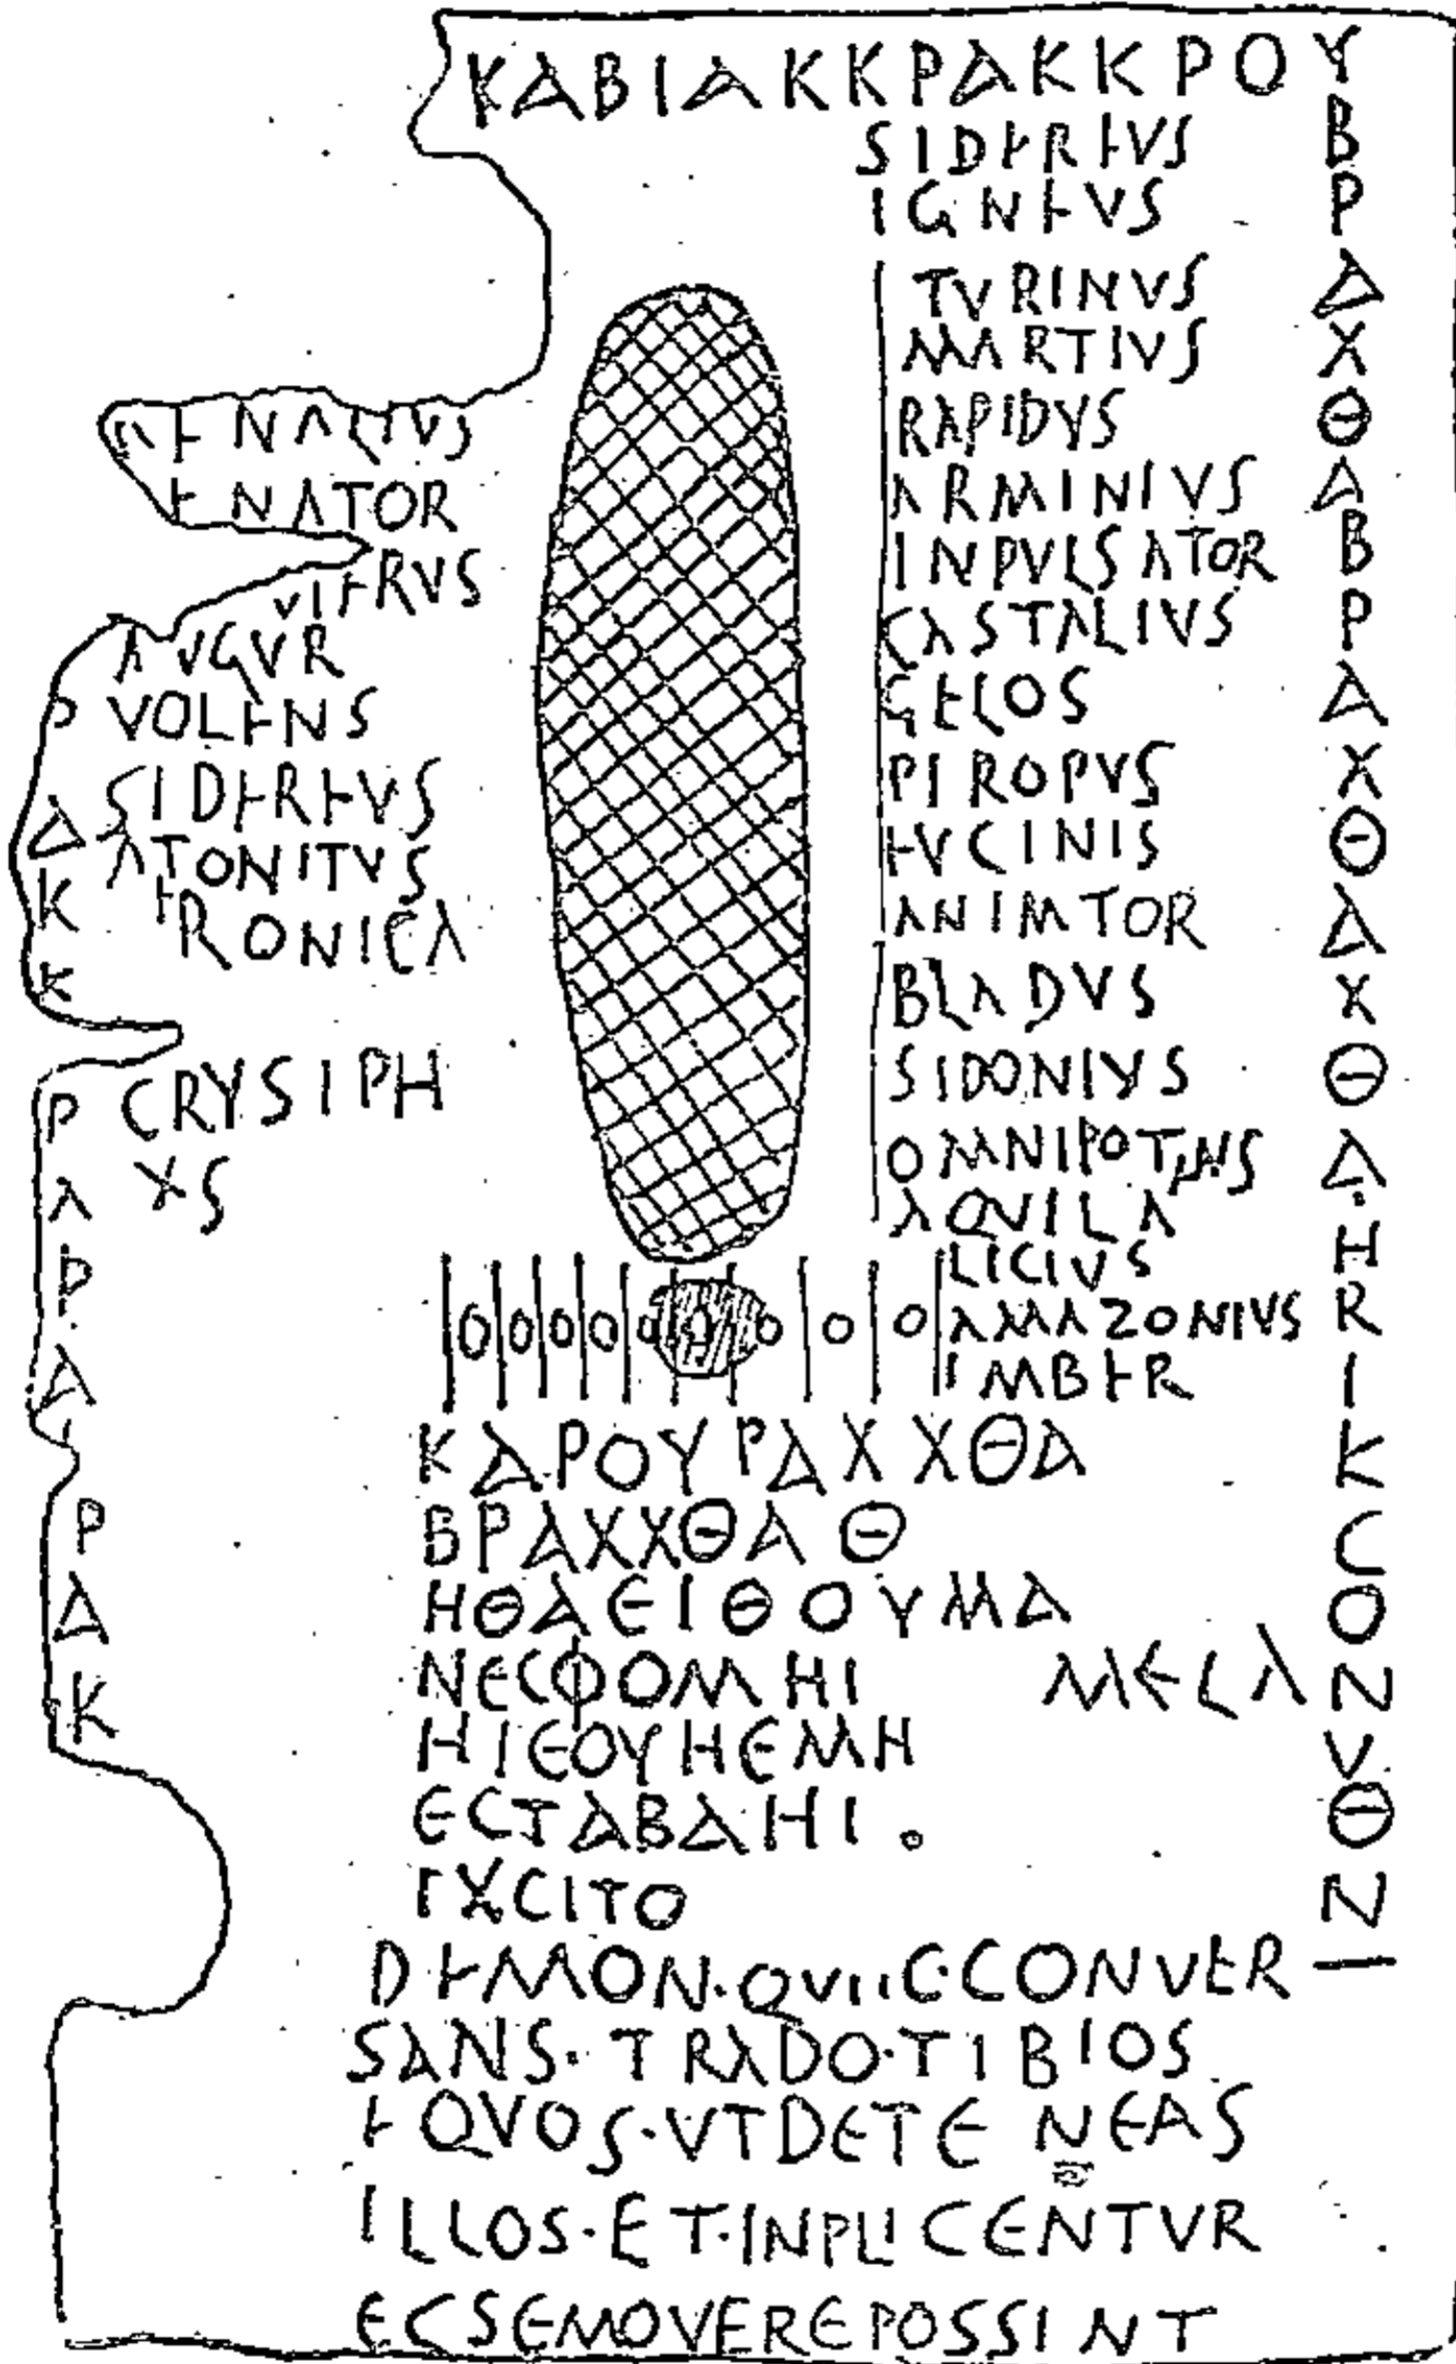 ΚΑΒΙΑΚΚΡΑΚΚΡΟΥ
SIDEREVS
IGNEVS
TVRINVS
MARTIVS
RAPIDVS
ARMINIVS
INPVLSATOR
CASTALIVS
GELOS
PIROPVS
EVCINIS
ANIMTOR
BLADVS
SIDONIVS
OMNIPOTENS
AQVILA
LICIVS
AMAZONIVS
IMBER
ENATOR
AVGVR
VOLENS
SIDEREVS
ATONITVS
ERONICA
CRYSIPH
XS
Ρ
Α
Κ
Κ
Ρ
Α
Ρ
Α
Ρ
Α
Κ
Β
Ρ
Α
Χ
Θ
Α
Β
Ρ
Α
Χ
Θ
Α
Χ
Θ
Α
Η
R
Ι
Κ
C
Ο
Ν
V
Θ
Ν
Ι
ΚΑΡΟΥΡΑΧΧΘΑ
ΒΡΑΧΧΘΑΘ
ΗΘΑΕΙΘΟΥΜΑ
ΝΕCΦΟΜΗΙ ΜΕCΑ
ΗΙΕΟΥΗΕΜΗ
ΕCΤΑΒΑΗΙ
EXCITO
DEMON·QVIIC·CONVER
SANS·TRADO·TIBIOS
EQVOS·VTDETENEAS
ILLOS·ET·INPLICENTVR
ECSEMOVEREPOSSINT